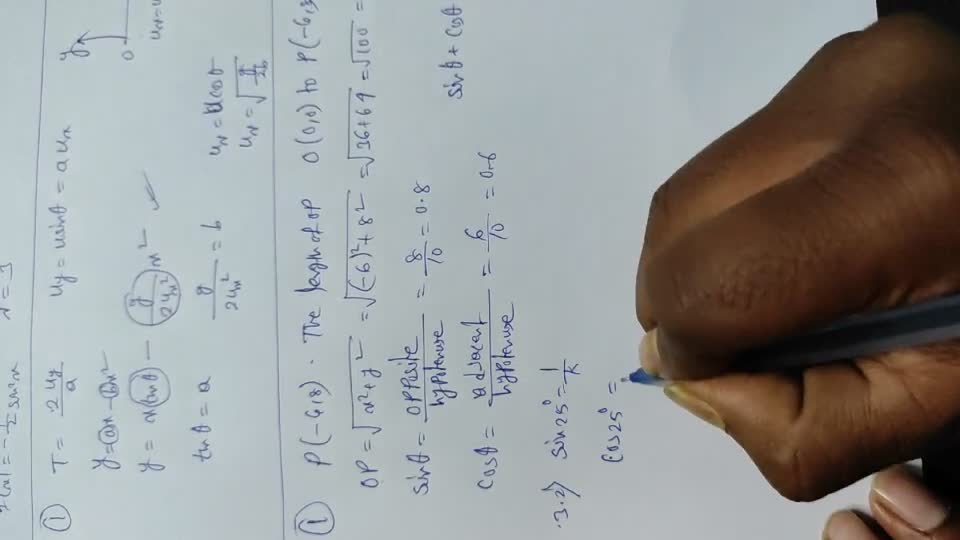 T = 2uy/a    uy = usinθ = a ux
y = ax - bx²
y = x(tanθ) - (g/2ux²)x²
tanθ = a    g/2ux² = b    ux = ucosθ
ux = √g/2b
(i) P(-6,8). The length of OP O(0,0) to P(-6,8
OP = √x²+y² = √(-6)²+8² = √36+64 = √100 =
sinθ = opposite/hypotenuse = 8/10 = 0.8
cosθ = adjacent/hypotenuse = 6/10 = 0.6    sinθ + cosθ
3.2) sin25° = 1/k
cos25° =